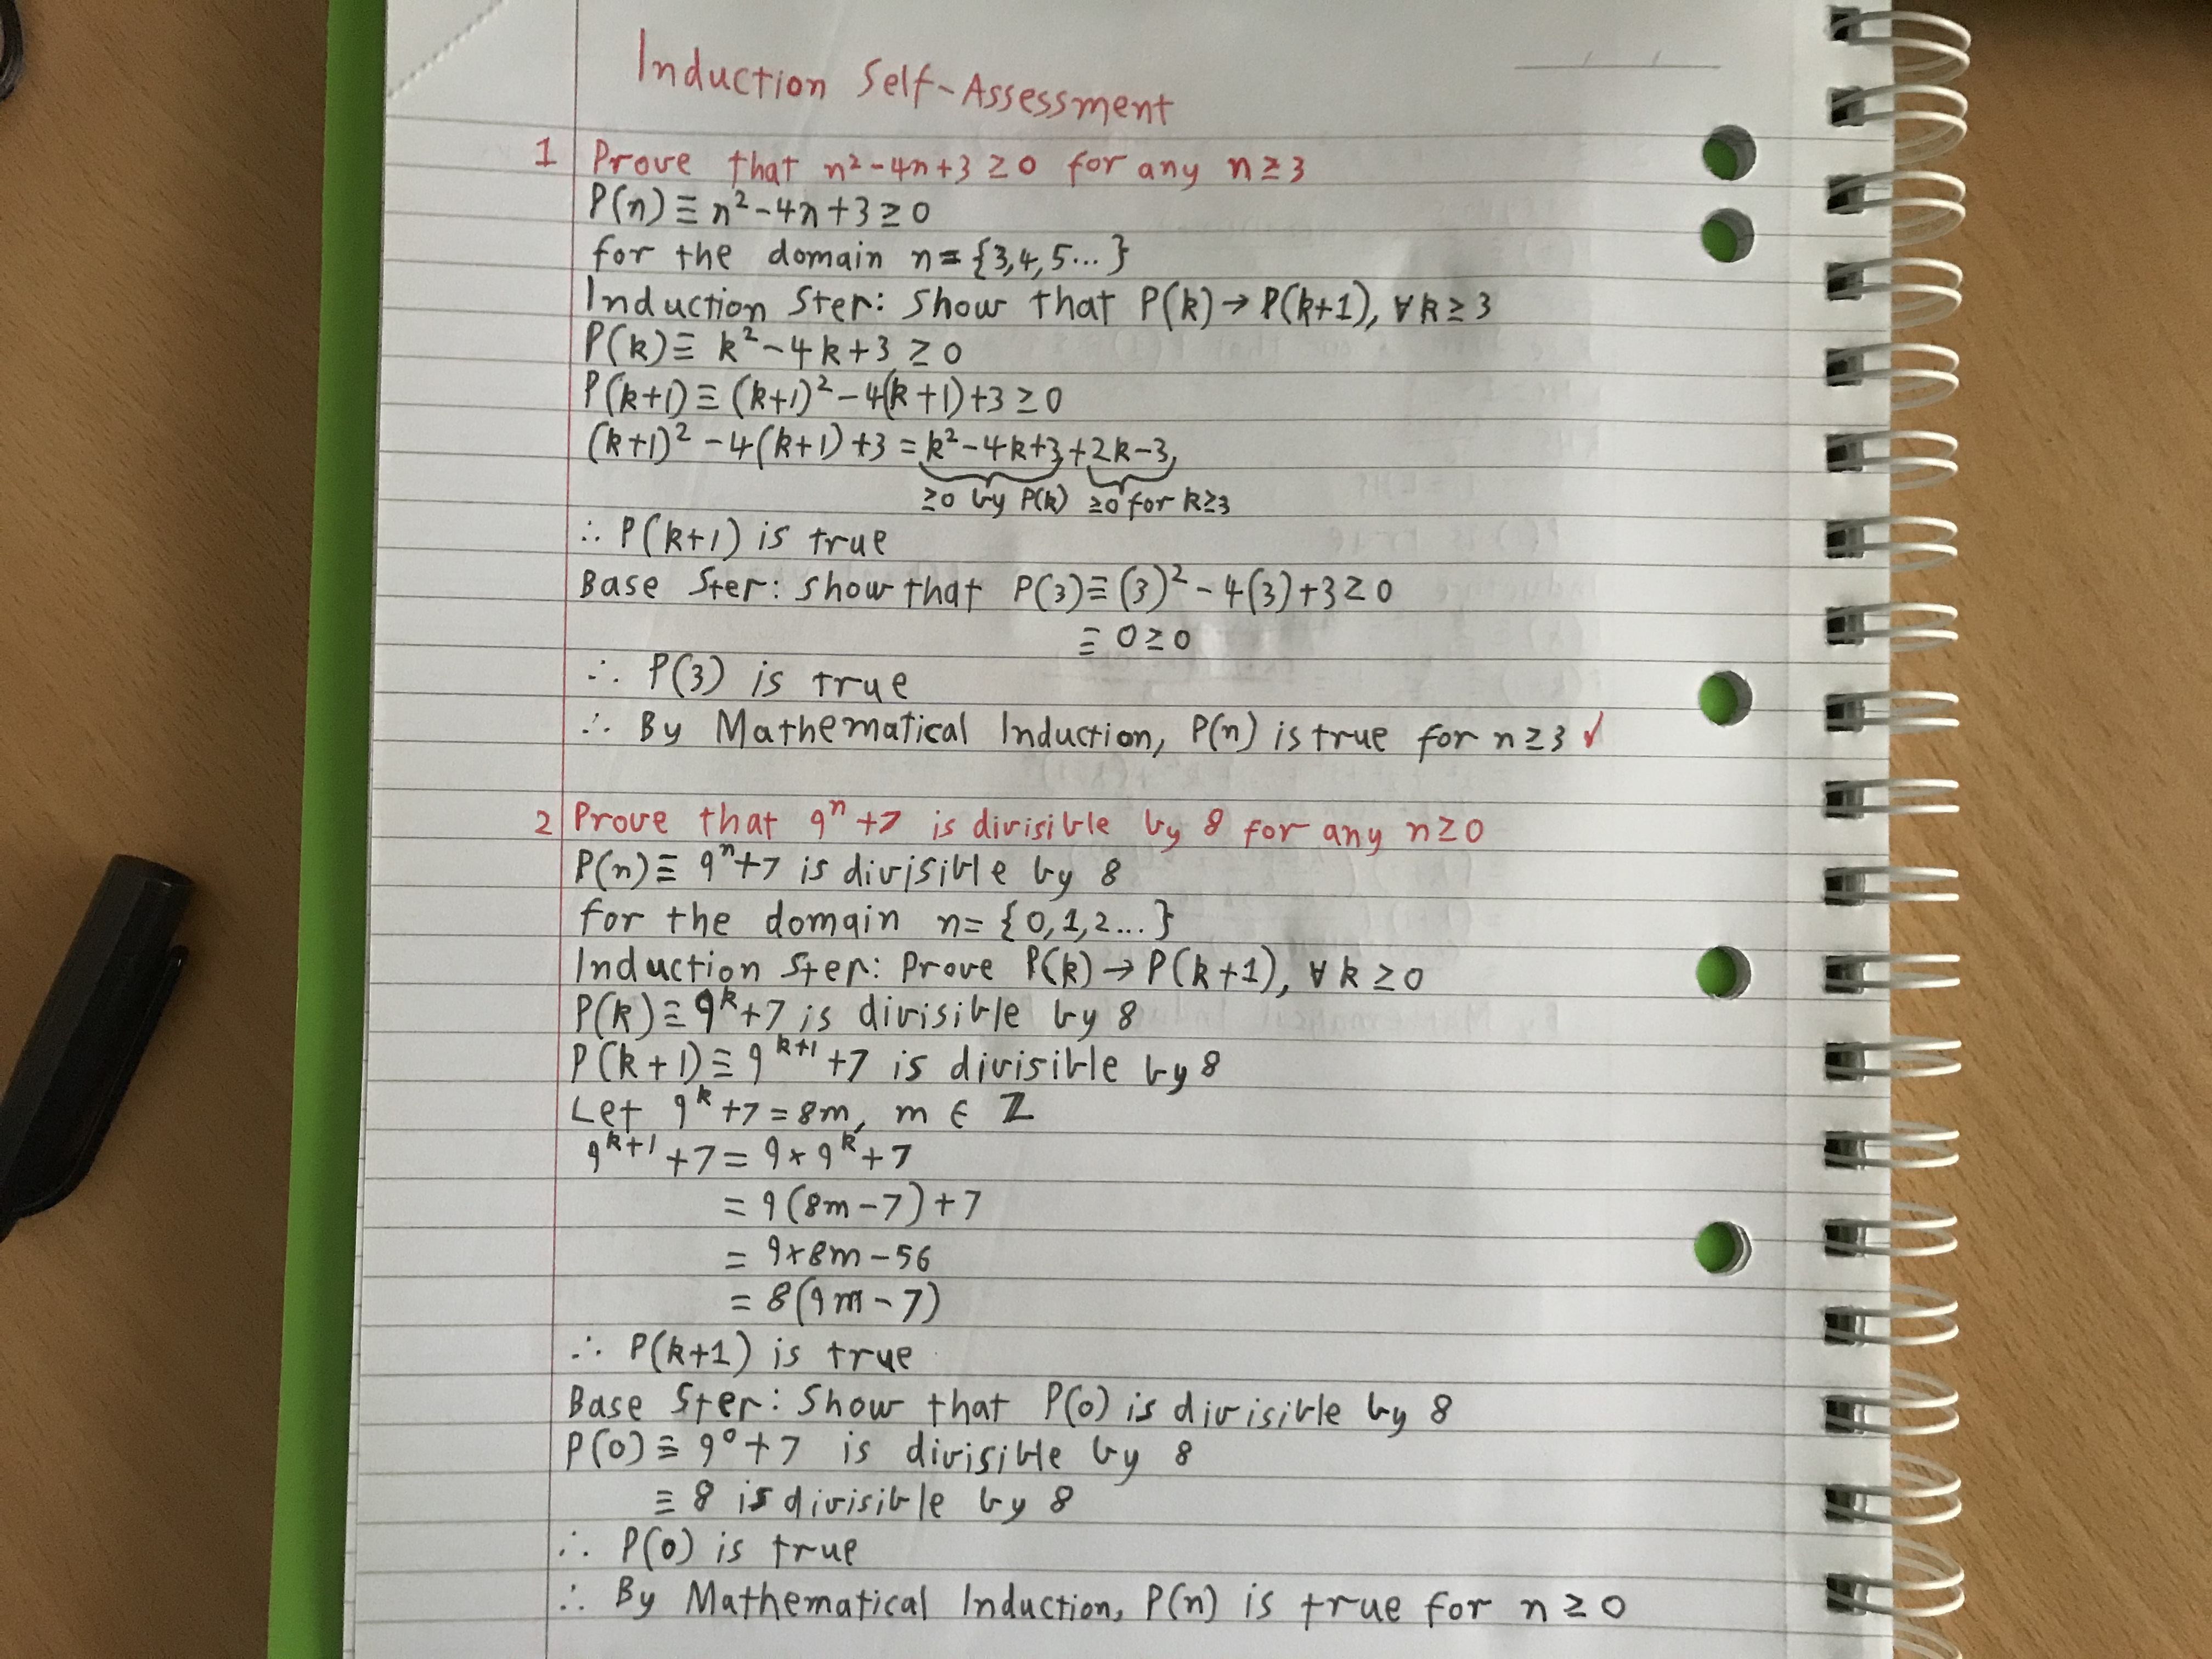 Induction Self-Assessment
1 Prove that n²-4n+3 ≥ 0 for any n ≥ 3
P(n) ≡ n²-4n+3 ≥ 0
for the domain n = {3,4,5...}
Induction Step: Show that P(k) → P(k+1), ∀k ≥ 3
P(k) ≡ k²-4k+3 ≥ 0
P(k+1) ≡ (k+1)²-4(k+1)+3 ≥ 0
(k+1)²-4(k+1)+3 = k²-4k+3+2k-3
≥0 by P(k) ≥0 for k≥3
∴ P(k+1) is true
Base Step: Show that P(3) ≡ (3)²-4(3)+3 ≥ 0
≡ 0 ≥ 0
∴ P(3) is true
∴ By Mathematical Induction, P(n) is true for n ≥ 3 ✓
2 Prove that 9ⁿ+7 is divisible by 8 for any n ≥ 0
P(n) ≡ 9ⁿ+7 is divisible by 8
for the domain n = {0,1,2...}
Induction Step: Prove P(k) → P(k+1), ∀k ≥ 0
P(k) ≡ 9ᵏ+7 is divisible by 8
P(k+1) ≡ 9ᵏ⁺¹+7 is divisible by 8
Let 9ᵏ+7 = 8m, m ∈ ℤ
9ᵏ⁺¹+7 = 9×9ᵏ+7
= 9(8m-7)+7
= 9×8m-56
= 8(9m-7)
∴ P(k+1) is true
Base Step: Show that P(0) is divisible by 8
P(0) ≡ 9⁰+7 is divisible by 8
≡ 8 is divisible by 8
∴ P(0) is true
∴ By Mathematical Induction, P(n) is true for n ≥ 0